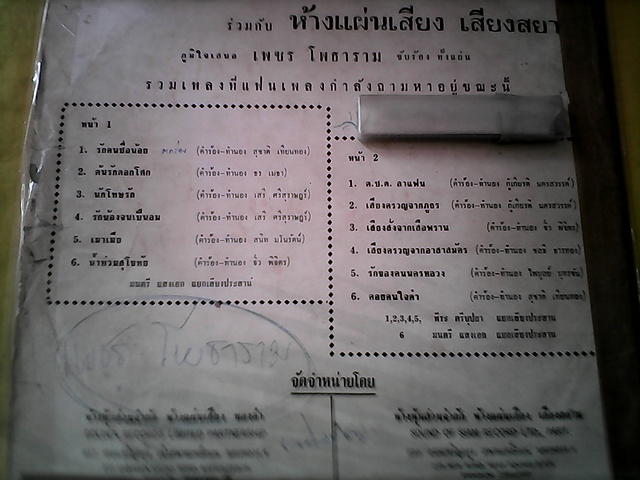 ร่วมกับ ห้างแผ่นเสียง เสียงสยา
ภูมิใจเสนอ เพชร โพธาราม ขับร้อง ทั้งแผ่น
รวมเพลงที่แฟนเพลงกำลังถามหาอยู่ขณะนี้
หน้า 1
1. รักคนชื่อน้อย (คำร้อง-ทำนอง สุชาติ เทียนทอง)
2. ต้นรักดอกโศก (คำร้อง-ทำนอง ธร เมธา)
3. นักโทษรัก (คำร้อง-ทำนอง เสรี ศรีสุราษฎร์)
4. รักน้องจนเป็นลม (คำร้อง-ทำนอง เสรี ศรีสุราษฎร์)
5. เมาเมีย (คำร้อง-ทำนอง สนิท มโนรัตน์)
6. น้ำท่วมสุโขทัย (คำร้อง-ทำนอง จิ๋ว พิจิตร)
มนตรี แสงเอก แยกเสียงประสาน
หน้า 2
1. ต.ป.ด. ลาแฟน (คำร้อง-ทำนอง กู้เกียรติ นครสวรรค์)
2. เสียงครวญจากภูธร (คำร้อง-ทำนอง กู้เกียรติ นครสวรรค์)
3. เสียงสั่งจากเสือพราน (คำร้อง-ทำนอง จิ๋ว พิจิตร)
4. เสียงครวญจากอาสาสมัคร (คำร้อง-ทำนอง ชลธี ธารทอง)
5. รักของคนนครหลวง (คำร้อง-ทำนอง ไพบูลย์ บุตรขัน)
6. คอยคนใจดำ (คำร้อง-ทำนอง สุชาติ เทียนทอง)
1,2,3,4,5, พีระ ตรีบุปผา แยกเสียงประสาน
6 มนตรี แสงเอก แยกเสียงประสาน
เพชร โพธาราม
จัดจำหน่ายโดย
ห้างหุ้นส่วนจำกัด ห้างแผ่นเสียง
ห้างหุ้นส่วนจำกัด ห้างแผ่นเสียง เสียงสยาม
SOUND OF SIAM RECORD LTD., PART.